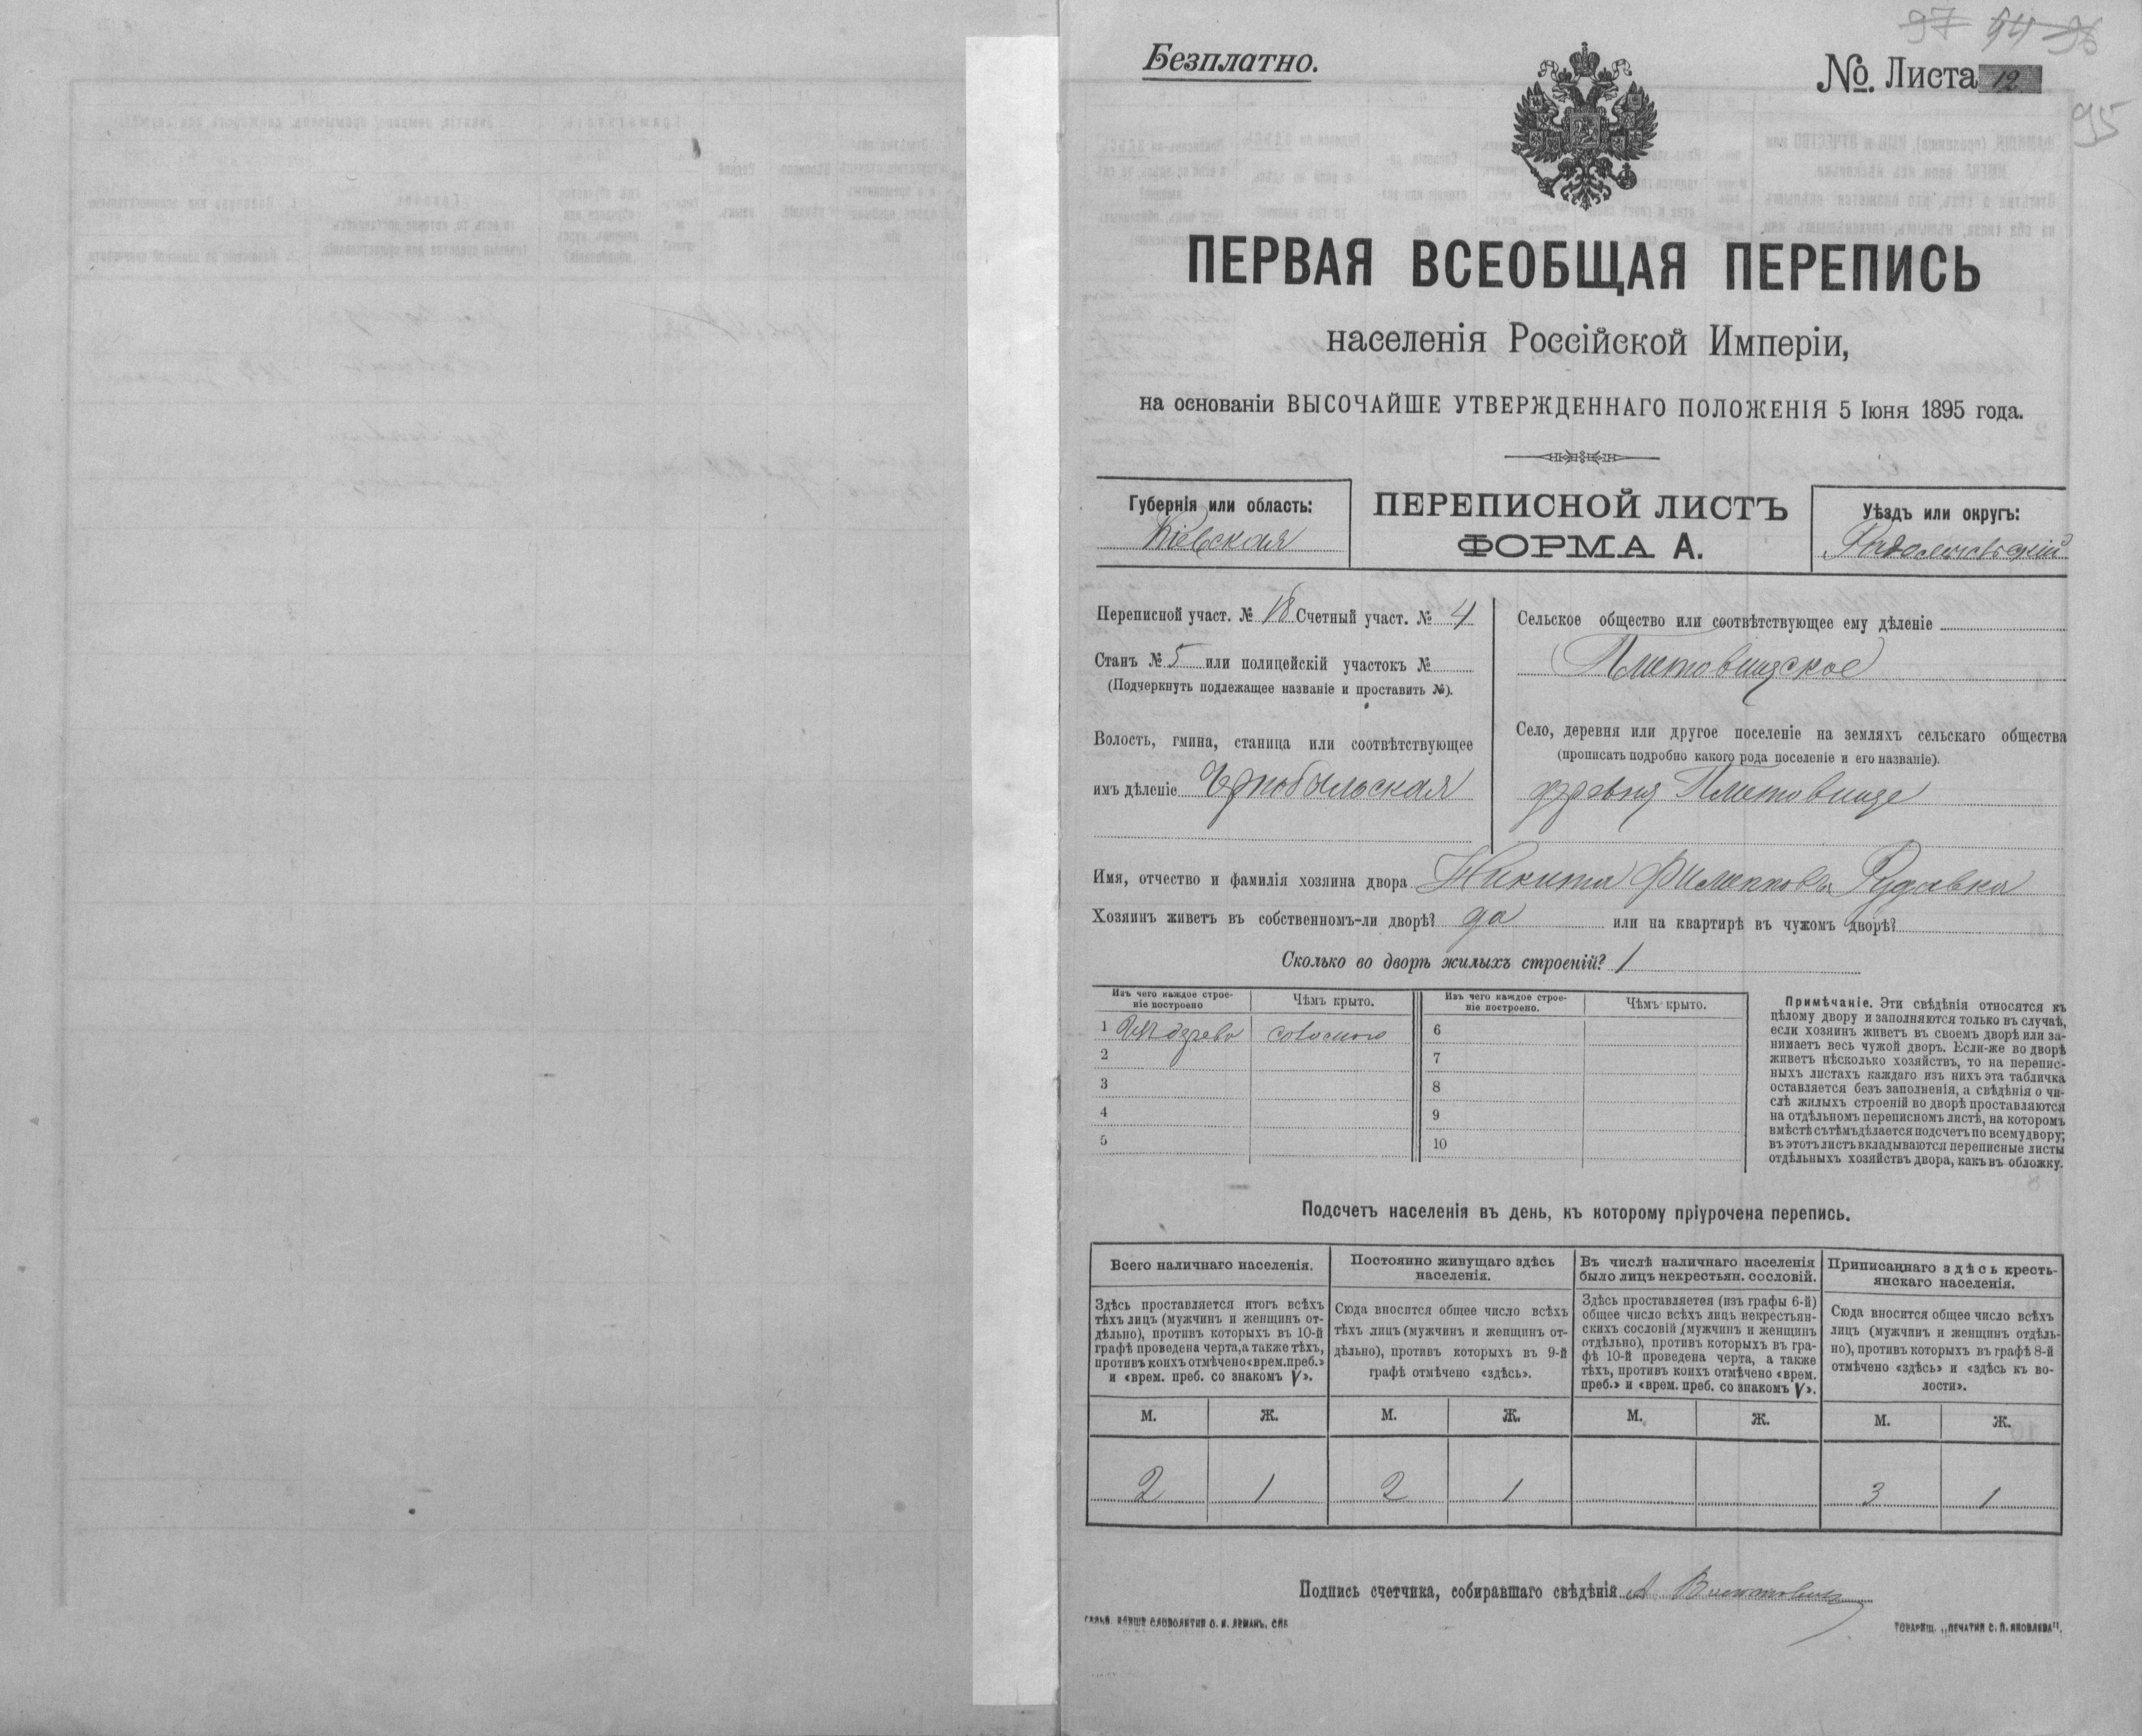 97 94 96
Безплатно.
№ Листа 12
95
ПЕРВАЯ ВСЕОБЩАЯ ПЕРЕПИСЬ
населенія Россійской Имперіи,
на основаніи ВЫСОЧАЙШЕ УТВЕРЖДЕННАГО ПОЛОЖЕНІЯ 5 Іюня 1895 года.
Губернія или область:
Кіевская
ПЕРЕПИСНОЙ ЛИСТЪ
ФОРМА А.
Уѣздъ или округъ:
Радомысльскій
Переписной участ. № 18 Счетный участ. № 4
Станъ № 5 или полицейскій участокъ №
(Подчеркнуть подлежащее названіе и проставить №).
Волость, гмина, станица или соотвѣтствующее
имъ дѣленіе Чернобыльская
Сельское общество или соотвѣтствующее ему дѣленіе
Плютовищское
Село, деревня или другое поселеніе на земляхъ сельскаго общества
(прописать подробно какого рода поселеніе и его названіе).
деревня Плютовище
Имя, отчество и фамилія хозяина двора Никита Филипповъ Рудавка
Хозяинъ живетъ въ собственномъ-ли дворѣ? да или на квартирѣ въ чужомъ дворѣ?
Сколько во дворѣ жилыхъ строеній? 1
Изъ чего каждое строе-
ніе построено
Чѣмъ крыто.
Изъ чего каждое строе-
ніе построено.
Чѣмъ крыто.
1 Изъ дерева соломою
2
3
4
5
6
7
8
9
10
Примѣчаніе. Эти свѣдѣнія относятся къ
цѣлому двору и заполняются только въ случаѣ,
если хозяинъ живетъ въ своемъ дворѣ или за-
нимаетъ весь чужой дворъ. Если-же во дворѣ
живетъ нѣсколько хозяйствъ, то на перепис-
ныхъ листахъ каждаго изъ нихъ эта табличка
оставляется безъ заполненія, а свѣдѣнія о чи-
слѣ жилыхъ строеній во дворѣ проставляются
на отдѣльномъ переписномъ листѣ, на которомъ
вмѣстѣ съ тѣмъ дѣлается подсчетъ по всему двору;
въ этотъ листъ вкладываются переписные листы
отдѣльныхъ хозяйствъ двора, какъ въ обложку.
Подсчетъ населенія въ день, къ которому пріурочена перепись.
Всего наличнаго населенія.
Здѣсь проставляется итогъ всѣхъ
тѣхъ лицъ (мужчинъ и женщинъ от-
дѣльно), противъ которыхъ въ 10-й
графѣ проведена черта, а также тѣхъ,
противъ коихъ отмѣчено «врем. преб.»
и «врем. преб. со знакомъ V».
М. Ж.
2 1
Постоянно живущаго здѣсь
населенія.
Сюда вносится общее число всѣхъ
тѣхъ лицъ (мужчинъ и женщинъ от-
дѣльно), противъ которыхъ въ 9-й
графѣ отмѣчено «здѣсь».
М. Ж.
2 1
Въ числѣ наличнаго населенія
было лицъ некрестьян. сословій.
Здѣсь проставляется (изъ графы 6-й)
общее число всѣхъ лицъ некрестьян-
скихъ сословій (мужчинъ и женщинъ
отдѣльно), противъ которыхъ въ гра-
фѣ 10-й проведена черта, а также
тѣхъ, противъ коихъ отмѣчено «врем.
преб.» и «врем. преб. со знакомъ V».
М. Ж.
Приписаннаго здѣсь кресть-
янскаго населенія.
Сюда вносится общее число всѣхъ
лицъ (мужчинъ и женщинъ отдѣль-
но), противъ которыхъ въ графѣ 8-й
отмѣчено «здѣсь» и «здѣсь къ во-
лости».
М. Ж.
3 1
Подпись счетчика, собиравшаго свѣдѣнія А
ГАЛЬВ. КЛИШЕ СЛОВОЛИТНИ О. И. ЛЕМАНЪ, СПБ
ТОВАРИЩ. „ПЕЧАТНЯ С. П. ЯКОВЛЕВА".